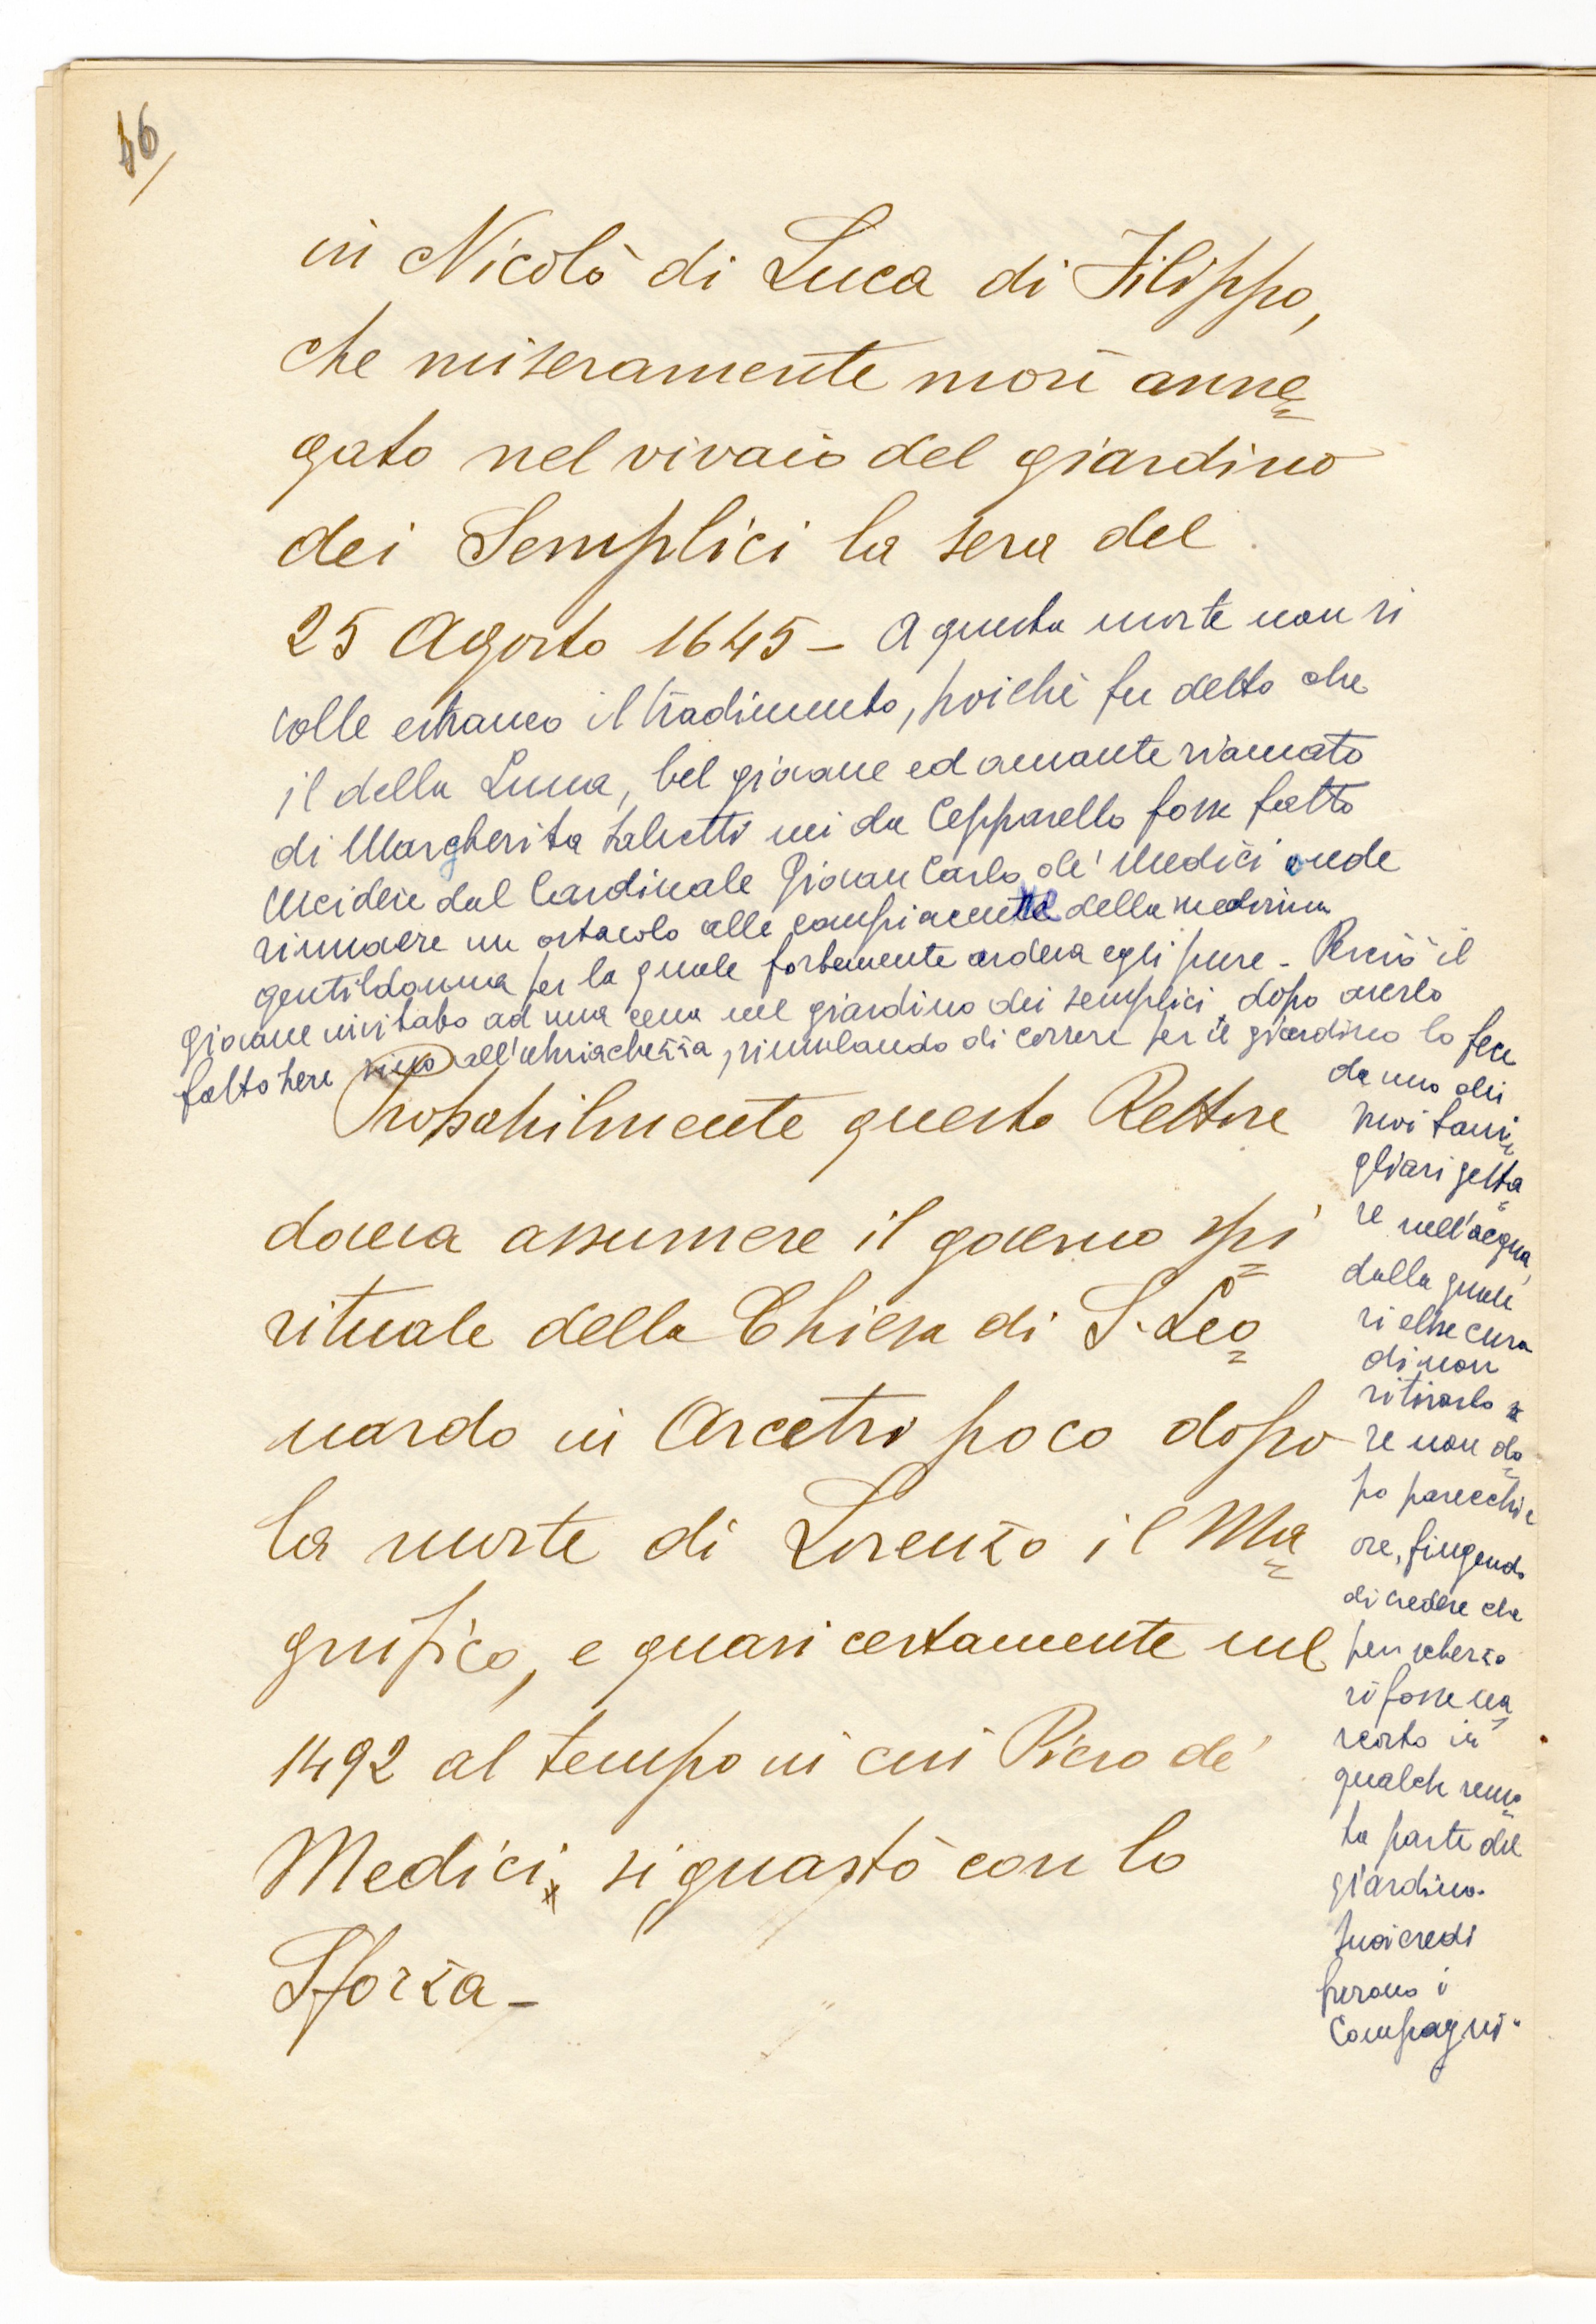 46/
in Nicolò di Luca di Filippo,
che miseramente morì anne=
gato nel vivaio del giardino
dei Semplici la sera del
25 Agosto 1645 — A questa morte non si
volle estraneo il tradimento, poichè fu detto che
il della Luna, bel giovane ed amante riamato
di Margherita Salvetti nei da Cepparello fosse fatto
uccidere dal Cardinale Giovan Carlo de' Medici onde
rimuovere un ostacolo alle compiacenze della medesima
gentildonna per la quale fortemente ardeva egli pure - Perciò il
giovane invitato ad una cena nel giardino dei semplici dopo averlo
fatto bere sino all'ubriachezza, simulando di correre per il giardino lo fece
da uno dei
suoi fami=
gliari getta=
re nell'acqua,
dalla quale
si ebbe cura
di non
ritirarlo
se non do=
po parecchie
ore, fingendo
di credere che
per scherzo
si fosse na=
scosto in
qualche remo=
ta parte del
giardino.
Suoi eredi
furono i
Compagni.
Probabilmente questo Rettore
doveva assumere il governo spi=
rituale della Chiesa di S. Leo=
nardo in Arcetri poco dopo
la morte di Lorenzo il Ma=
gnifico, e quasi certamente nel
1492 al tempo in cui Piero de'
Medici, si guastò con lo
Sforza —